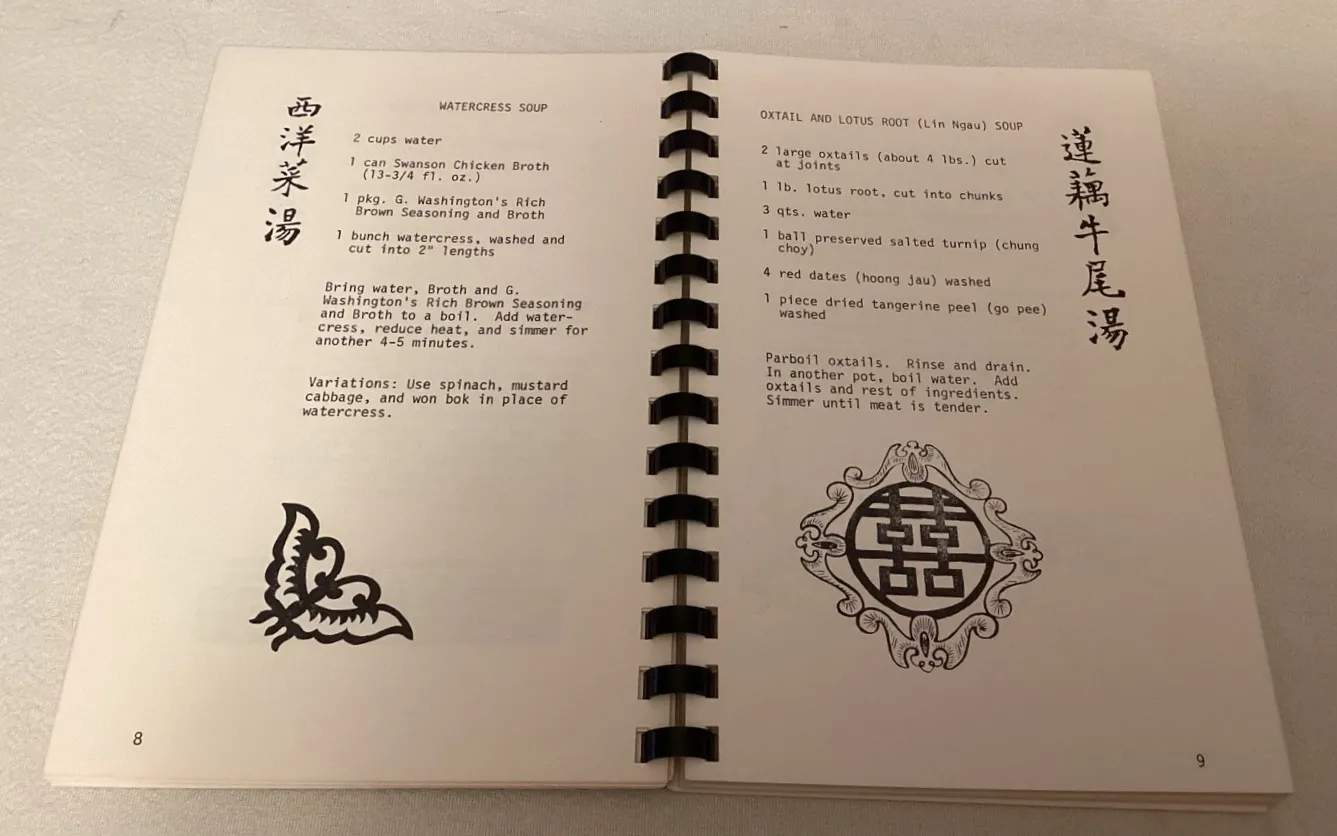 西洋菜湯
WATERCRESS SOUP
2 cups water
1 can Swanson Chicken Broth
(13-3/4 fl. oz.)
1 pkg. G. Washington's Rich
Brown Seasoning and Broth
1 bunch watercress, washed and
cut into 2" lengths
Bring water, Broth and G.
Washington's Rich Brown Seasoning
and Broth to a boil. Add water-
cress, reduce heat, and simmer for
another 4-5 minutes.
Variations: Use spinach, mustard
cabbage, and won bok in place of
watercress.
8
OXTAIL AND LOTUS ROOT (Lin Ngau) SOUP
2 large oxtails (about 4 lbs.) cut
at joints
1 lb. lotus root, cut into chunks
3 qts. water
1 ball preserved salted turnip (chung
choy)
4 red dates (hoong jau) washed
1 piece dried tangerine peel (go pee)
washed
Parboil oxtails. Rinse and drain.
In another pot, boil water. Add
oxtails and rest of ingredients.
Simmer until meat is tender.
蓮藕牛尾湯
囍
9